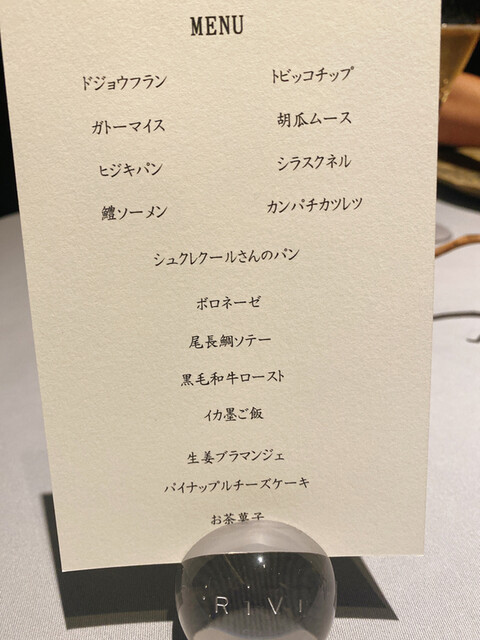 MENU
ドジョウフラン トビッコチップ
ガトーマイス 胡瓜ムース
ヒジキパン シラスクネル
鱧ソーメン カンパチカツレツ
シュクレクールさんのパン
ボロネーゼ
尾長鯛ソテー
黒毛和牛ロースト
イカ墨ご飯
生姜ブラマンジェ
パイナップルチーズケーキ
お茶菓子
RiVi